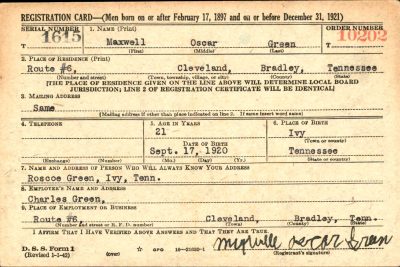 REGISTRATION CARD—(Men born on or after February 17, 1897 and on or before December 31, 1921)
SERIAL NUMBER 1. NAME (Print) ORDER NUMBER
1615 Maxwell Oscar Green 10202
(First) (Middle) (Last)
2. PLACE OF RESIDENCE (Print)
Route #6, Cleveland, Bradley, Tennessee
(Number and street) (Town, township, village, or city) (County) (State)
[THE PLACE OF RESIDENCE GIVEN ON THE LINE ABOVE WILL DETERMINE LOCAL BOARD
JURISDICTION; LINE 2 OF REGISTRATION CERTIFICATE WILL BE IDENTICAL]
3. MAILING ADDRESS
Same
[Mailing address if other than place indicated on line 2. If same insert word same]
4. TELEPHONE 5. AGE IN YEARS 6. PLACE OF BIRTH
21 Ivy
DATE OF BIRTH (Town or county)
Sept. 17, 1920 Tennessee
(Exchange) (Number) (Mo.) (Day) (Yr.) (State or country)
7. NAME AND ADDRESS OF PERSON WHO WILL ALWAYS KNOW YOUR ADDRESS
Roscoe Green, Ivy, Tenn.
8. EMPLOYER'S NAME AND ADDRESS
Charles Green,
9. PLACE OF EMPLOYMENT OR BUSINESS
Route #6 Cleveland, Bradley, Tenn.
(Number and street or R. F. D. number) (Town) (County) (State)
I AFFIRM THAT I HAVE VERIFIED ABOVE ANSWERS AND THAT THEY ARE TRUE.
D. S. S. Form 1
(Revised 1-1-42) (over) GPO oscar Green
(Registrant's signature)